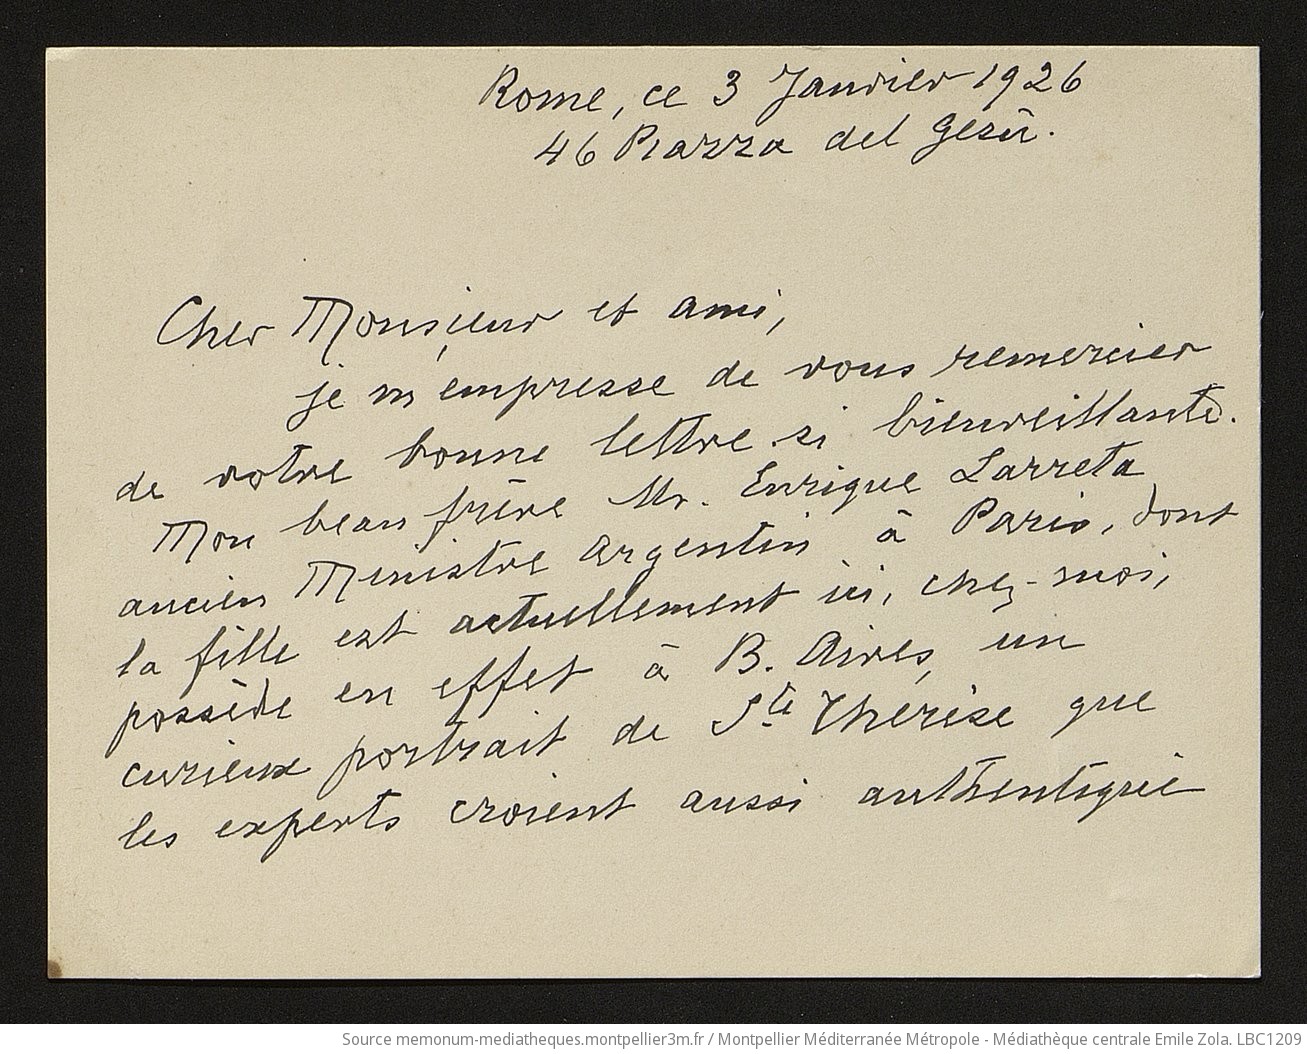 Rome, ce 3 Janvier 1926
46 Piazza del Gesù.
Cher Monsieur et ami,
je m'empresse de vous remercier
de votre bonne lettre si bienveillante.
Mon beau frère Mr. Enrique Larreta
ancien Ministre Argentin à Paris, dont
la fille est actuellement ici, chez-moi,
possède en effet à B. Aires, un
curieux portrait de Ste Thérèse que
les experts croient aussi authentique
Source memonum-mediatheques.montpellier3m.fr / Montpellier Méditerranée Métropole - Médiathèque centrale Emile Zola. LBC1209